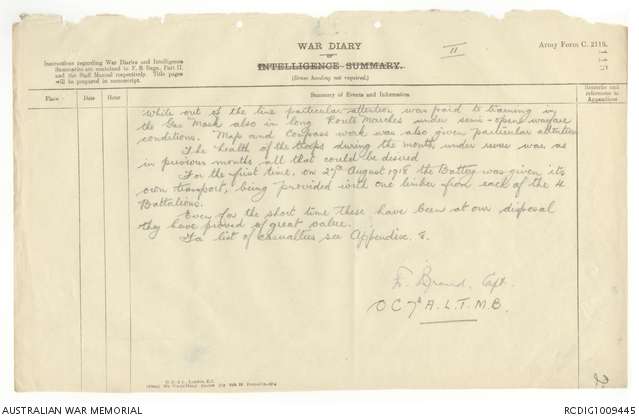 WAR DIARY
or
INTELLIGENCE SUMMARY.
(Erase heading not required.)
II
Army Form C. 2118.
Instructions regarding War Diaries and Intelligence
Summaries are contained in F. S. Regs., Part II.
and the Staff Manual respectively. Title pages
will be prepared in manuscript.
Place
Date
Hour
Summary of Events and Information
Remarks and
references to
Appendices
While out of the line particular attention was paid to training in
the Gas Mask also in long Route Marches under semi-open warfare
conditions. Map and Compass work was also given particular attention
The health of the troops during the month under was as
in previous months all that could be desired
For the first time, on 27th August 1918 the Battery was given its
own transport, being provided with one limber from each of the 4
Battalions.
Even for the short time these have been at our disposal
they have proved of great value.
For list of casualties see Appendix E.
Capt.
O C 7th A. L. T. M. B.
AUSTRALIAN WAR MEMORIAL
RCDIG1009445